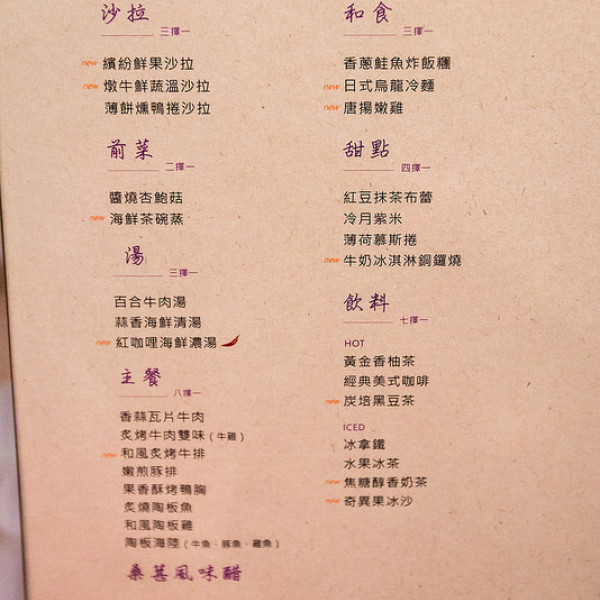 沙拉
三擇一
new 繽紛鮮果沙拉
new 燉牛鮮蔬溫沙拉
薄餅燻鴨捲沙拉
前菜
二擇一
醬燒杏鮑菇
new 海鮮茶碗蒸
湯
三擇一
百合牛肉湯
蒜香海鮮清湯
new 紅咖哩海鮮濃湯
主餐
八擇一
香蒜瓦片牛肉
炙烤牛肉雙味(牛雞)
new 和風炙烤牛排
嫩煎豚排
果香酥烤鴨胸
炙燒陶板魚
和風陶板雞
陶板海陸(牛魚‧豚魚‧雞魚)
桑葚風味醋
和食
三擇一
香蔥鮭魚炸飯糰
new 日式烏龍冷麵
new 唐揚嫩雞
甜點
四擇一
紅豆抹茶布蕾
冷月紫米
薄荷慕斯捲
new 牛奶冰淇淋銅鑼燒
飲料
七擇一
HOT
黃金香柚茶
經典美式咖啡
new 炭培黑豆茶
ICED
冰拿鐵
水果冰茶
new 焦糖醇香奶茶
new 奇異果冰沙